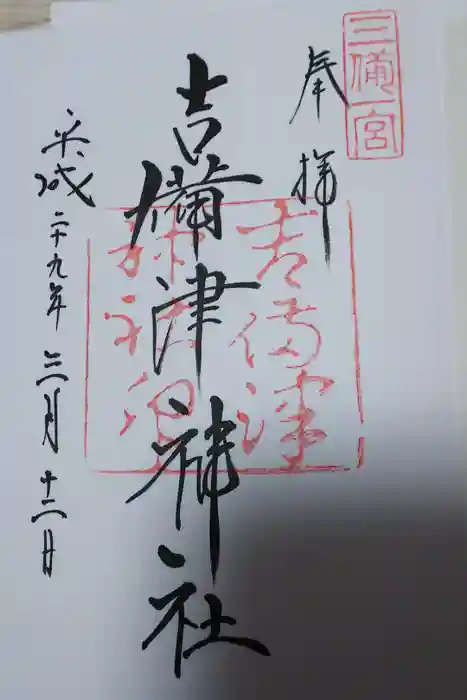 三備一宮
奉拝
吉備津神社
吉備津
平成二十九年三月十二日